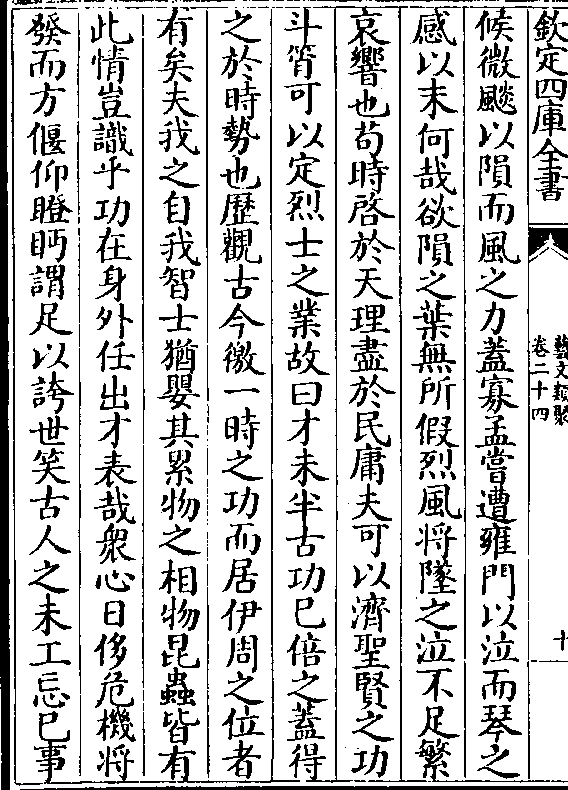 欽定四庫全書
藝文類聚
卷二十四
十
候微飈以隕而風之力蓋寡孟嘗遭雍門以泣而琴之
感以末何哉欲隕之葉無所假烈風将墜之泣不足繁
哀響也苟時啓於天理盡於民庸夫可以濟聖賢之功
斗筲可以定烈士之業故曰才未半古功已倍之蓋得
之於時勢也歷觀古今徼一時之功而居伊周之位者
有矣夫我之自我智士猶嬰其累物之相物昆蟲皆有
此情豈識乎功在身外任出才表哉衆心日侈危機将
發而方偃仰瞪眄謂足以誇世笑古人之未工忘已事